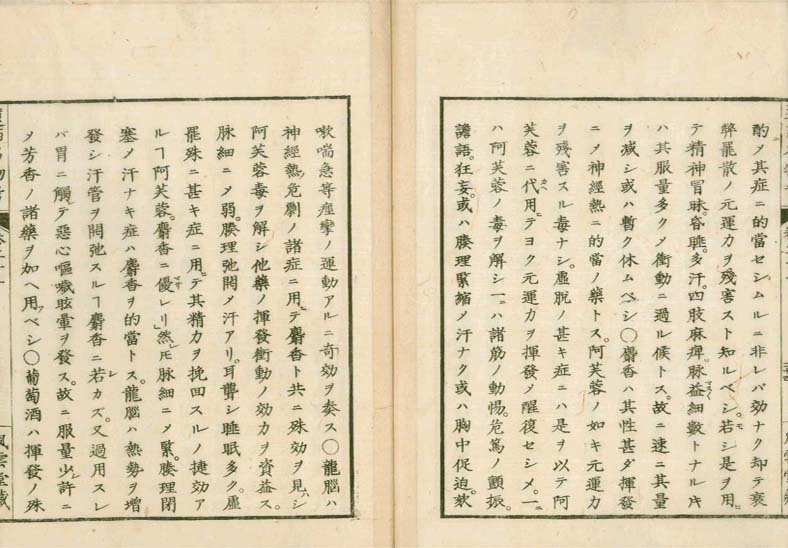 酌メ其症ニ的當セシムルニ非レバ効ナク却テ衰
弊罷散ノ元運力ヲ残害スト知ルベシ。若シ是ヲ用
テ精神冒昧。昏睡。多汗。四肢麻痺。脉益細數トナル片
ハ其服量多クメ衝動ニ過ル候トス。故ニ速ニ其量
ヲ減シ或ハ暫ク休ムベシ〇麝香ハ其性甚ダ揮發
ニメ神經熱ニ的當ノ藥トス。阿芙蓉ノ如キ元運力
ヲ残害スル毒ナシ。虛脱ノ甚キ症ニハ是ヲ以テ阿
芙蓉ニ代用テヨク元運力ヲ揮發メ醒復セシメ。一ニ
ハ阿芙蓉ノ毒ヲ解シ一ニハ諸筋ノ動惕。危篤ノ顫振。
譫語。狂妄。或ハ腠理緊縮メ汗ナク或ハ胸中促迫。欬
嗽喘急等痙攣ノ運動アルニ奇効ヲ奏ス〇龍腦ハ
神經熱危劇ノ諸症ニ用テ麝香ト共ニ殊効ヲ見ハシ
阿芙蓉毒ヲ解シ他藥ノ揮發衝動ノ効力ヲ資益ス。
脉細ニメ弱。腠理弛開メ汗アリ。耳聾シ睡眠多ク。虛
罷殊ニ甚キ症ニ用テ其精力ヲ挽回スルノ捷効ア
ルヿ阿芙蓉。麝香ニ優レリ然𪜈脉細ニメ緊。腠理閉
塞メ汗ナキ症ハ麝香ヲ的當トス。龍腦ハ熱勢ヲ增
發シ汗管ヲ開弛スルヿ麝香ニ若カズ。又過用スレ
バ胃ニ觸テ惡心嘔噦眩暈ヲ發ス。故ニ服量少許ニ
メ芳香ノ諸藥ヲ加ヘ用ベシ〇葡萄酒ハ揮發ノ殊
風雲堂藏